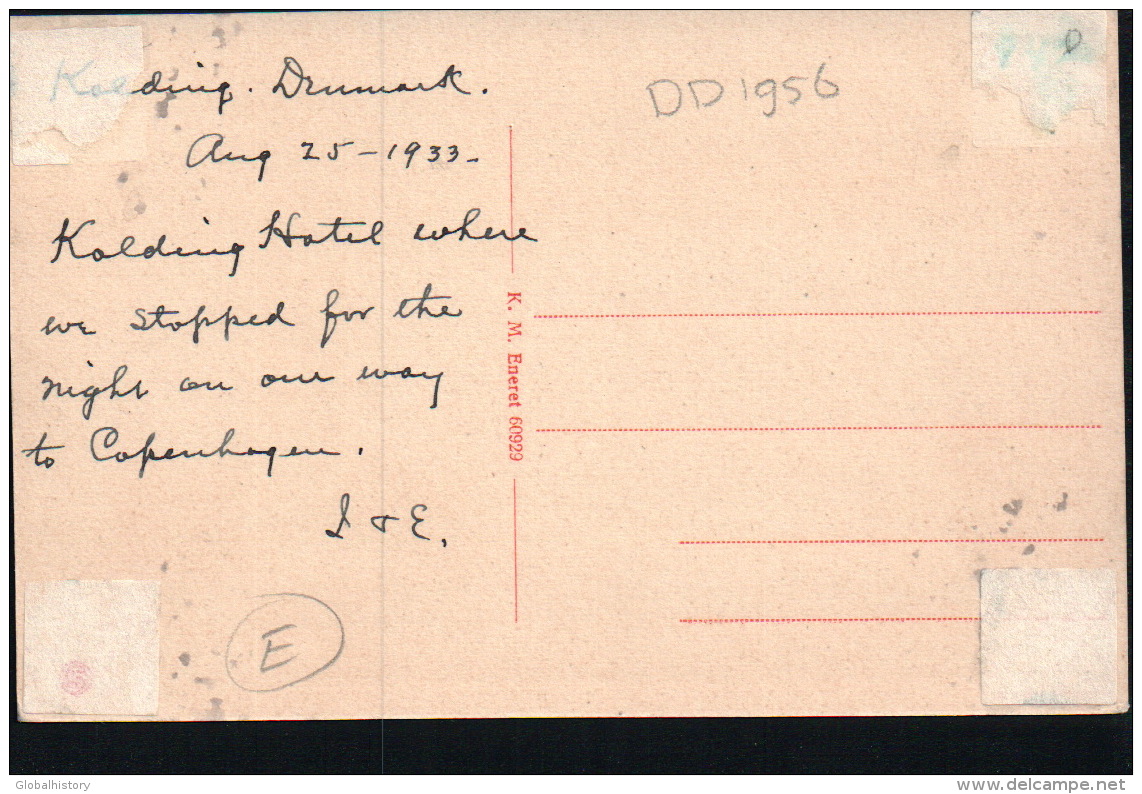 Kolding. Denmark.
Aug 25-1933.
Kolding Hotel where
we stopped for the
night on our way
to Copenhagen.
I & E.
E
DD1956
K. M. Eneret 60929
D
Globalhistory
delcampe.net